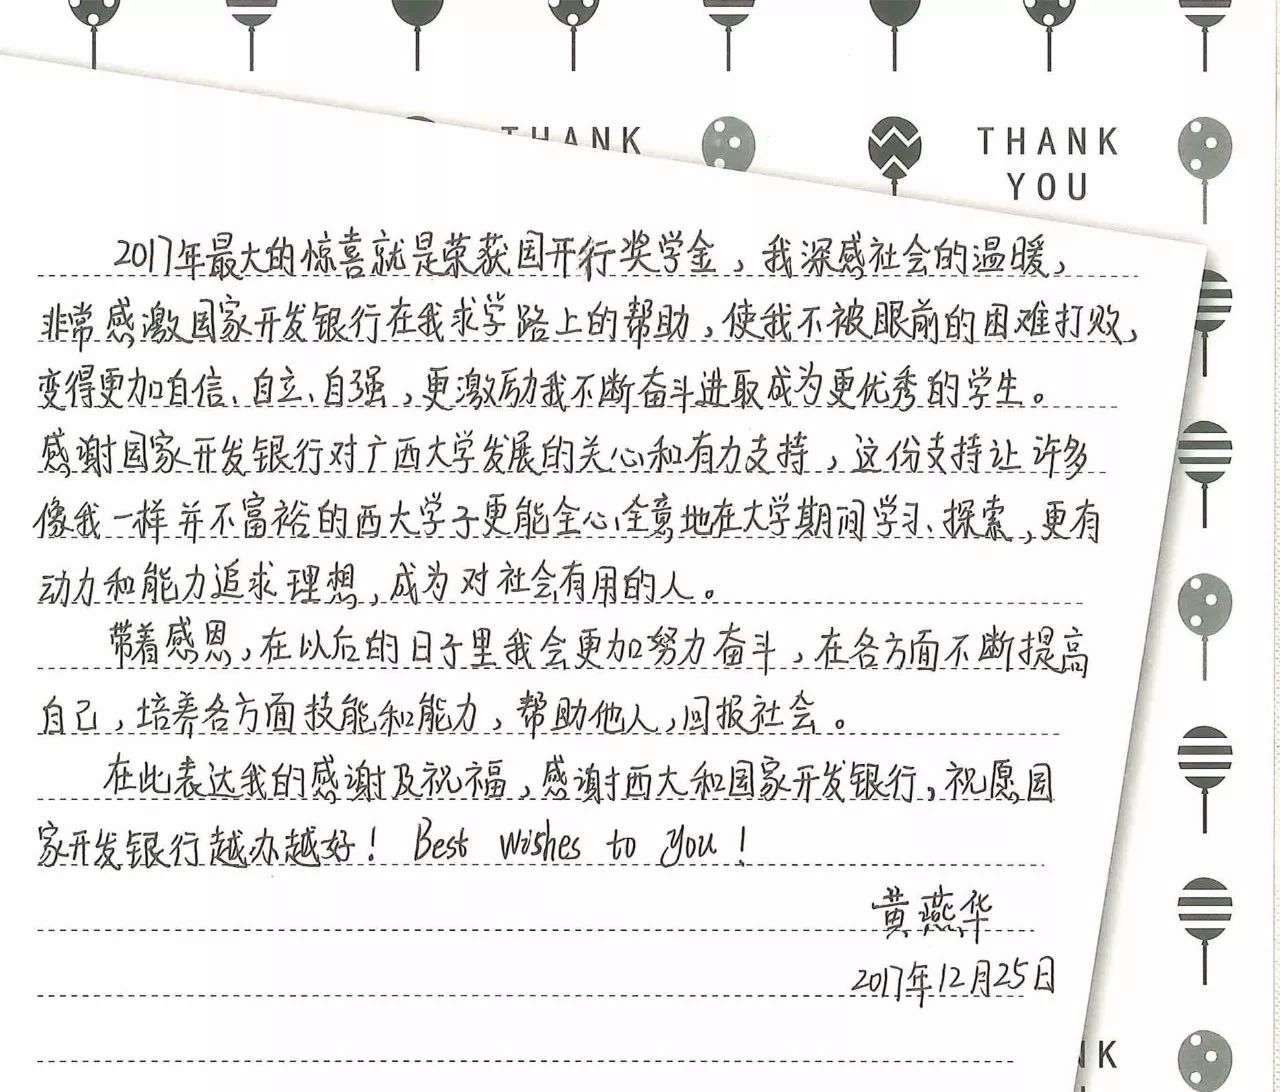 THANK
THANK
YOU
2017年最大的惊喜就是荣获国开行奖学金，我深感社会的温暖，
非常感激国家开发银行在我求学路上的帮助，使我不被眼前的困难打败，
变得更加自信、自立、自强，更激励我不断奋斗进取成为更优秀的学生。
感谢国家开发银行对广西大学发展的关心和有力支持，这份支持让许多
像我一样并不富裕的西大学子更能全心全意地在大学期间学习、探索，更有
动力和能力追求理想，成为对社会有用的人。
带着感恩，在以后的日子里我会更加努力奋斗，在各方面不断提高
自己，培养各方面技能和能力，帮助他人，回报社会。
在此表达我的感谢及祝福，感谢西大和国家开发银行，祝愿国
家开发银行越办越好！ Best wishes to you！
黄燕华
2017年12月25日
NK